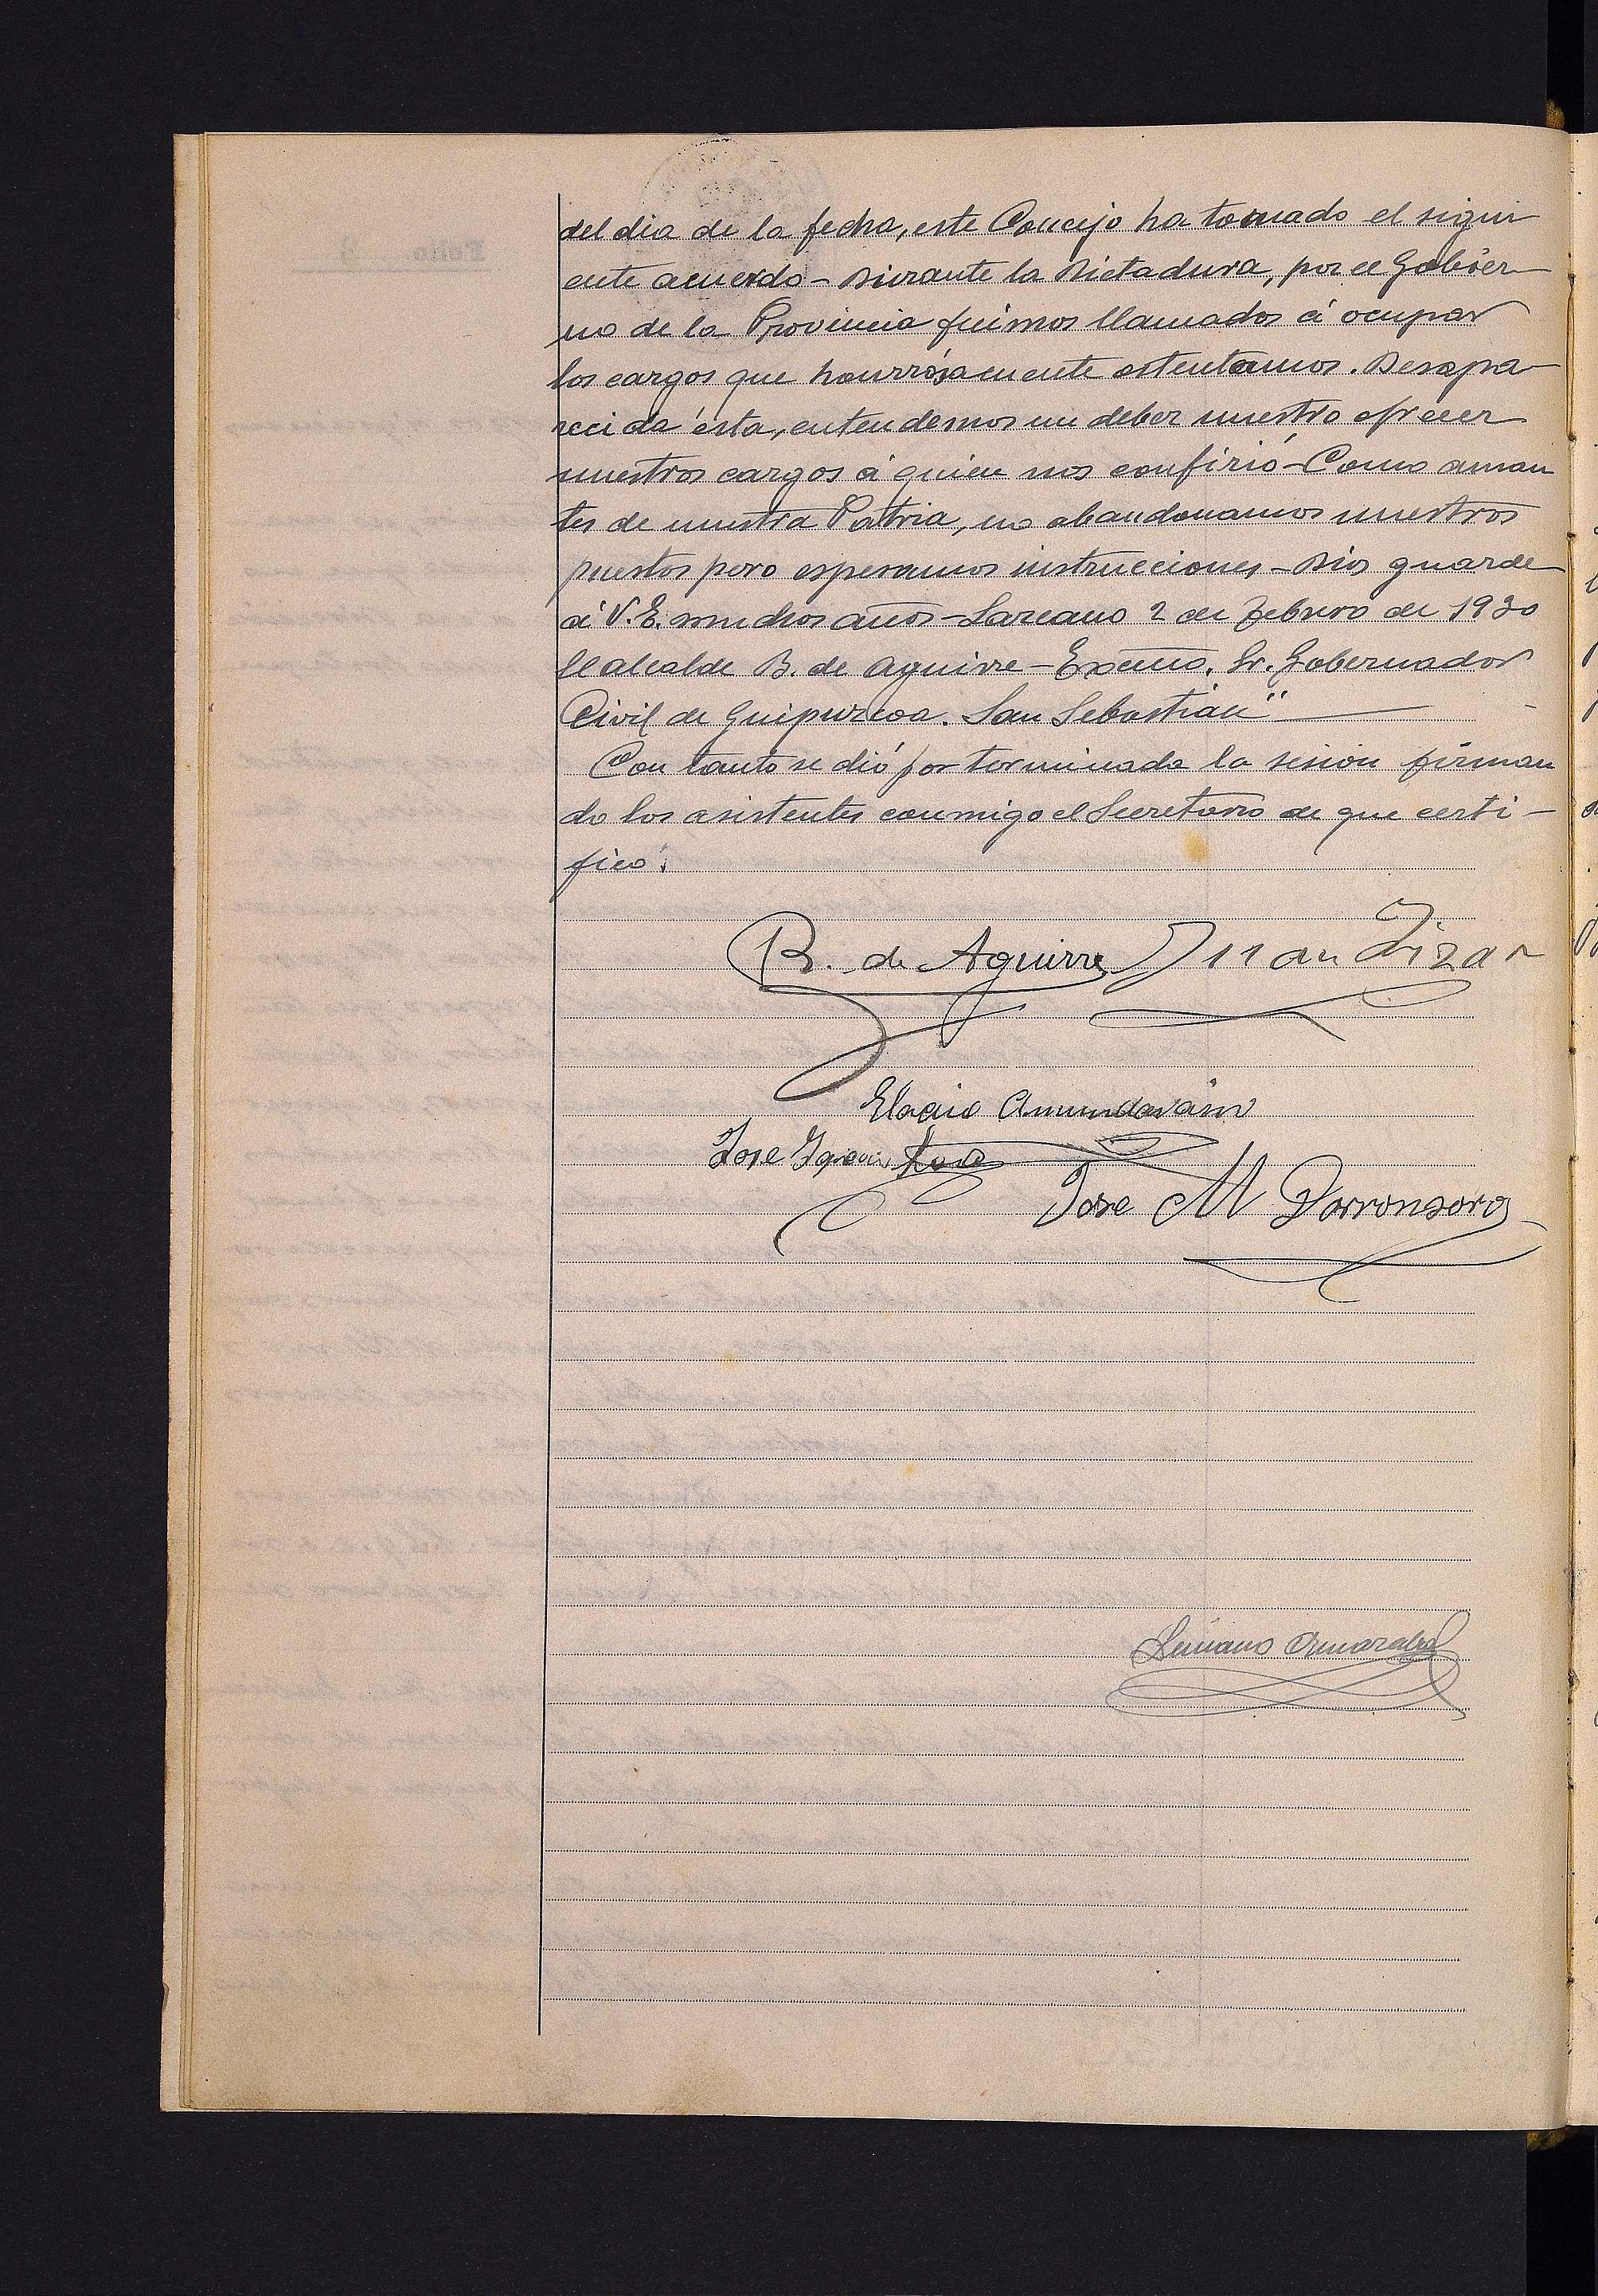 del dia de la fecha, este Concejo ha tomado el sigui
ente acuerdo - Durante la Dictadura, por el Gobier-
no de la Provincia fuimos llamados á ocupar
los cargos que hourrósamente ostentamos. Desapa-
recida ésta, entendemos un deber nuestro ofrecer
nuestros cargos á quien nos confirió - Como aman
tes de nuestra Patria, no abandonamos nuestros
puestos pero esperamos instrucciones - Dios guarde
á V. E. muchos años - Lazcano 2 de Febrero de 1930
El alcalde B. de Aguirre - Excmo. Sr. Gobernador
Civil de Guipuzcoa. San Sebastián"
Con tanto se dió por terminada la sesion firman
do los asistentes conmigo el Secretario de que certi-
fico.
B. de Aguirre Juan
Amundarain
Jose Ignacio
Jose M Dorronsoro